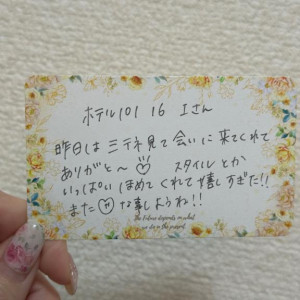 ホテル101 16 Iさん
昨日は 三予ネ見て会いに来てくれて
ありがと〜♡ スタイルとか
いっぱいほめてくれて嬉しすぎた!!
また♡な事しようね!!
the future depends on what
we do in the present